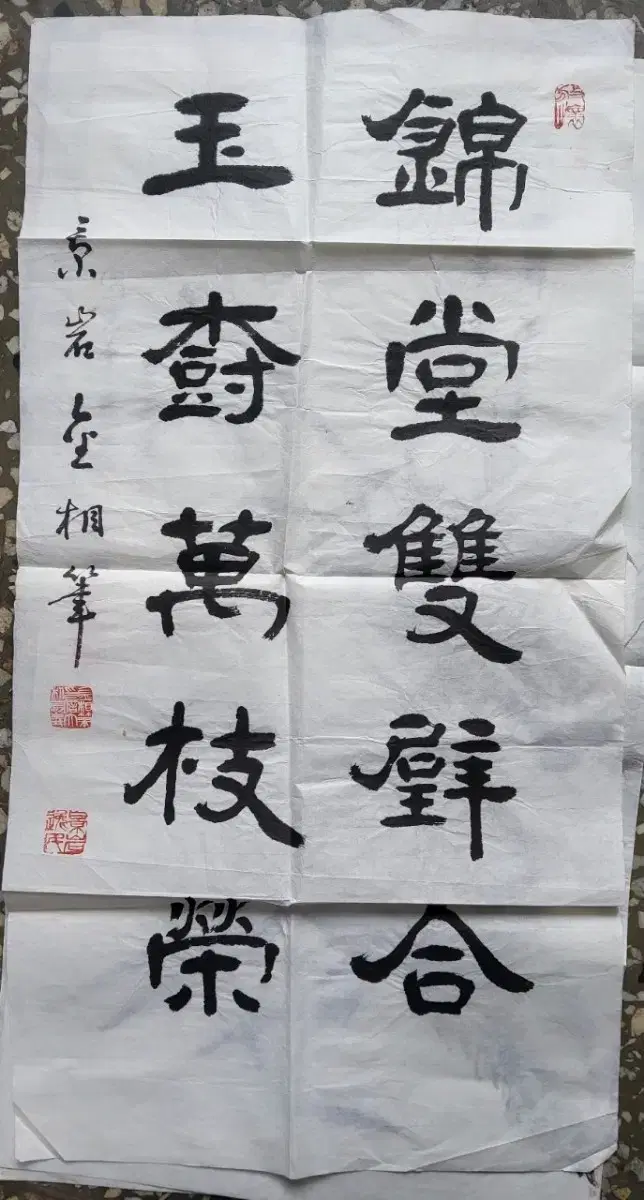 錦堂雙璧合
玉樹萬枝榮
景岩金相筆